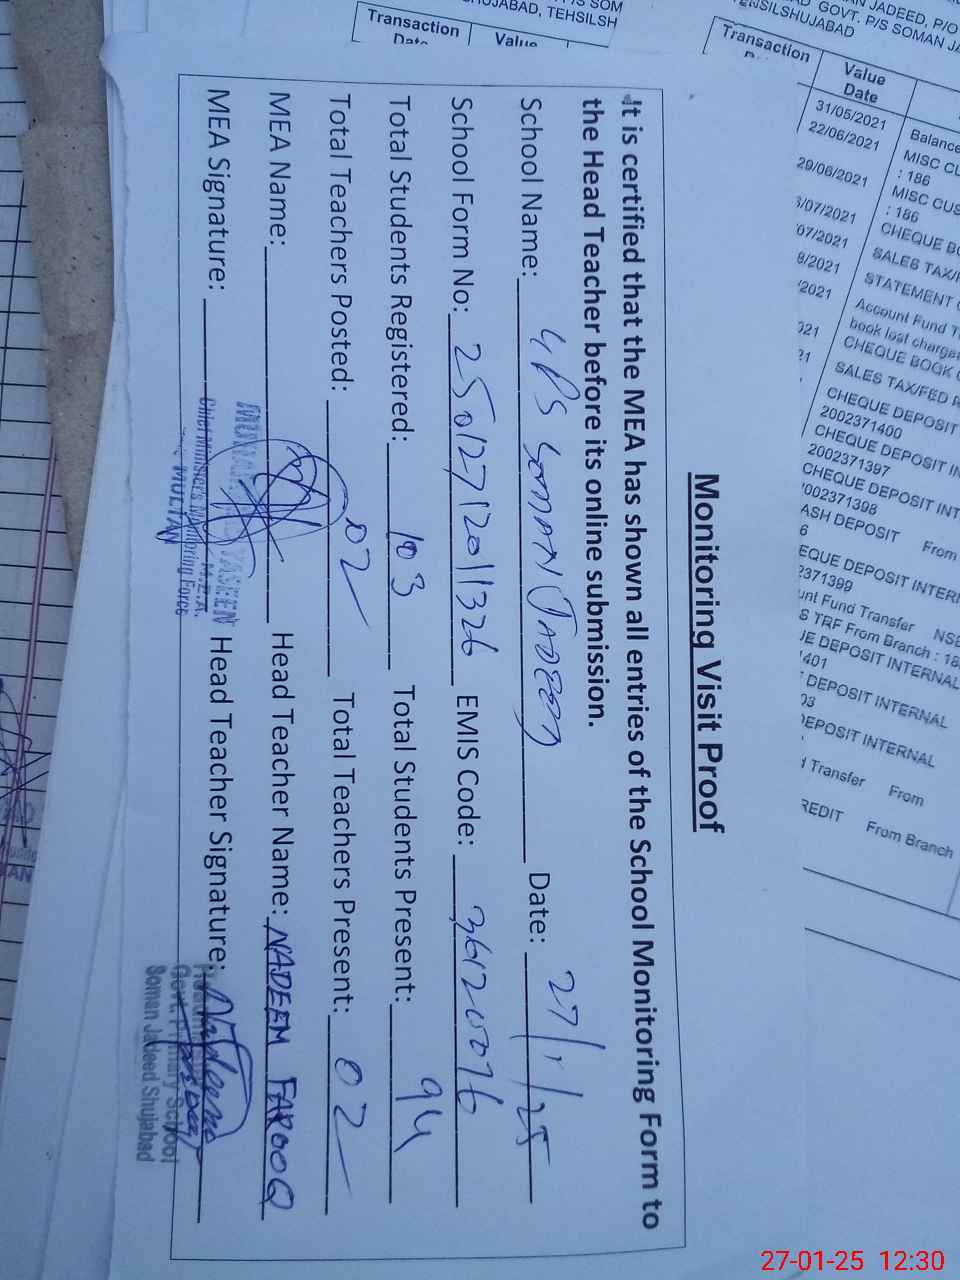 Monitoring Visit Proof
It is certified that the MEA has shown all entries of the School Monitoring Form to
the Head Teacher before its online submission.
School Name: GPS SOMAN JADEED Date: 27/1/25
School Form No: 25012712011326 EMIS Code: 36120076
Total Students Registered: 103 Total Students Present: 94
Total Teachers Posted: 02 Total Teachers Present: 02
MEA Name: Head Teacher Name: NADEEM FAROOQ
MEA Signature: Head Teacher Signature:
YASEEN
M.E.A.
Chief Minister's Monitoring Force
MULTAN
Govt. Primary School
Soman Jadeed Shujabad
P/S SOM
SHUJABAD, TEHSILSH
Transaction
Date
Value
JADEED, P/O
GOVT. P/S SOMAN JA
TENSILSHUJABAD
Transaction
Value
Date
31/05/2021
22/06/2021
29/06/2021
/07/2021
07/2021
8/2021
/2021
021
21
Balance
MISC CU
: 186
MISC CUS
: 186
CHEQUE BO
SALES TAX/F
STATEMENT
Account Fund T
book lost charge
CHEQUE BOOK
SALES TAX/FED
CHEQUE DEPOSIT
2002371400
CHEQUE DEPOSIT IN
2002371397
CHEQUE DEPOSIT INT
002371398
ASH DEPOSIT From
6
EQUE DEPOSIT INTERN
2371399
unt Fund Transfer NSB
S TRF From Branch : 18
UE DEPOSIT INTERNAL
1401
DEPOSIT INTERNAL
03
DEPOSIT INTERNAL
d Transfer From
REDIT From Branch
27-01-25 12:30